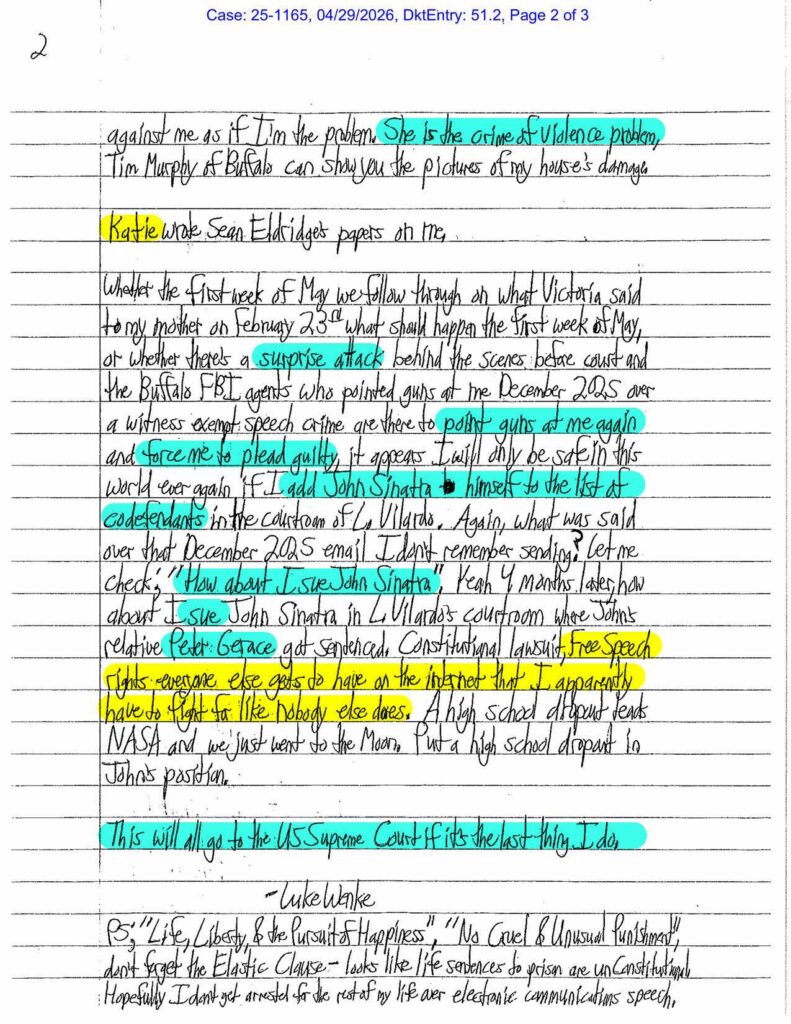 Case: 25-1165, 04/29/2026, DktEntry: 51.2, Page 2 of 3
2
against me as if I'm the problem. She is the crime of violence problem,
Tim Murphy of Buffalo can show you the pictures of my house's damage.
Katie wrote Sean Eldridge's papers on me.
Whether the first week of May we follow through on what Victoria said
to my mother on February 23rd what should happen the first week of May,
or whether there's a surprise attack behind the scenes before court and
the Buffalo FBI agents who pointed guns at me December 2025 over
a witness exempt speech crime are there to point guns at me again
and force me to plead guilty, it appears I will only be safe in this
world ever again if I add John Sinatra himself to the list of
codefendants in the courtroom of L. Vilardo. Again, what was said
over that December 2025 email I don't remember sending? Let me
check; "How about I sue John Sinatra". Yeah 4 months later, how
about I sue John Sinatra in L. Vilardo's courtroom where John's
relative Peter Gerace got sentenced. Constitutional lawsuit, Free Speech
rights everyone else gets to have on the internet that I apparently
have to fight for like nobody else does. A high school dropout leads
NASA and we just went to the Moon. Put a high school dropout in
John's position.
This will all go to the US Supreme Court if it's the last thing I do.
- Luke Wenke
PS; "Life, Liberty, & the Pursuit of Happiness", "No Cruel & Unusual Punishment",
don't forget the Elastic Clause - looks like life sentences to prison are unConstitutional
Hopefully I don't get arrested for the rest of my life over electronic communications speech.